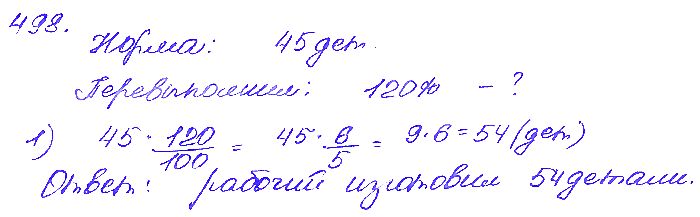 498.
Норма: 45дет.
Перевыполнил: 120% - ?
1) 45 · 120/100 = 45 · 6/5 = 9·6 = 54 (дет)
Ответ: рабочий изготовил 54детали.